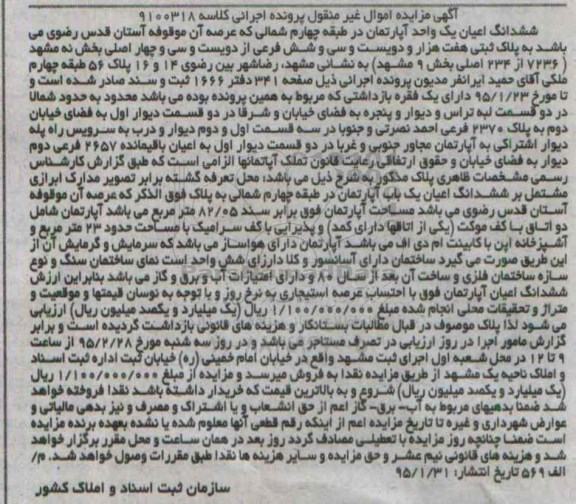 آگهی مزایده اموال غیر منقول پرونده اجرائی کلاسه ۹۱۰۰۳۱۸
ششدانگ اعیان یک واحد آپارتمان در طبقه چهارم شمالی که عرصه آن موقوفه آستان قدس رضوی می
باشد به پلاک ثبتی هفت هزار و دویست و سی و شش فرعی از دویست و سی و چهار اصلی بخش نه مشهد
(۷۲۳۶ از ۲۳۴ اصلی بخش ۹ مشهد) به نشانی: مشهد، رضاشهر بین رضوی ۱۴ و ۱۶ پلاک ۵۶ طبقه چهارم
ملکی آقای حمید ایرانفر مدیون پرونده اجرائی ذیل صفحه ۳۴۱ دفتر ۱۶۶۶ ثبت و سند صادر شده است و
تا مورخ ۹۵/۱/۲۳ دارای یک فقره بازداشتی که مربوط به همین پرونده بوده می باشد محدود به حدود شمالا
در دو قسمت لبه تراس و دیوار و پنجره به فضای خیابان و شرقا در دو قسمت دیوار اول به فضای خیابان
دوم به پلاک ۲۳۷۰ فرعی احمد نصرتی و جنوبا در سه قسمت اول و دوم دیوار و درب به سرویس راه پله
دیوار اشتراکی به آپارتمان مجاور جنوبی و غربا در دو قسمت دیوار اول به اعیان باقیمانده ۲۶۵۷ فرعی دوم
دیوار به فضای خیابان و حقوق ارتفاقی رعایت قانون تملک آپاتمانها الزامی است که طبق گزارش کارشناس
رسمی مشخصات ظاهری پلاک مذکور به شرح ذیل می باشد: محل تعرفه گشته برابر تصویر مدارک ابرازی
مشتمل بر ششدانگ اعیان یک باب آپارتمان در طبقه چهارم شمالی به پلاک فوق الذکر که عرصه آن موقوفه
آستان قدس رضوی می باشد مساحت آپارتمان فوق برابر سند ۸۲/۰۵ متر مربع می باشد آپارتمان شامل
دو اتاق با کف موکت (یکی از اتاقها دارای کمد) و پذیرایی با کف سرامیک با مساحت حدود ۲۳ متر مربع و
آشپزخانه اپن با کابینت ام دی اف می باشد آپارتمان دارای هواساز می باشد که سرمایش و گرمایش آن از
این طریق صورت می گیرد ساختمان دارای آسانسور و کلا دارای شش واحد است نمای ساختمان سنگ و نوع
سازه ساختمان فلزی و ساخت آن بعد از سال ۸۰ و دارای امتیازات آب و برق و گاز می باشد بنابراین ارزش
ششدانگ اعیان آپارتمان فوق با احتساب عرصه استیجاری به نرخ روز و با توجه به نوسان قیمتها و موقعیت و
متراژ و تحقیقات محلی انجام شده مبلغ ۱/۱۰۰/۰۰۰/۰۰۰ ریال (یک میلیارد و یکصد میلیون ریال) ارزیابی
می شود لذا پلاک موصوف در قبال مطالبات بستانکار و هزینه های قانونی بازداشت گردیده است و برابر
گزارش مامور اجرا در روز ارزیابی در تصرف مستاجر می باشد و در روز سه شنبه مورخ ۹۵/۲/۲۸ از ساعت
۹ تا ۱۲ در محل شعبه اول اجرای ثبت مشهد واقع در خیابان امام خمینی (ره) خیابان ثبت اداره ثبت اسناد
و املاک ناحیه یک مشهد از طریق مزایده نقدا به فروش میرسد و مزایده از مبلغ ۱/۱۰۰/۰۰۰/۰۰۰ ریال
(یک میلیارد و یکصد میلیون ریال) شروع و به بالاترین قیمت که خریدار داشته باشد نقدا فروخته خواهد
شد ضمنا بدهیهای مربوط به آب- برق- گاز اعم از حق انشعاب و یا اشتراک و مصرف و نیز بدهی مالیاتی و
عوارض شهرداری و غیره تا تاریخ مزایده اعم از اینکه رقم قطعی آنها معلوم شده یا نشده بعهده برنده مزایده
است ضمنا چنانچه روز مزایده با تعطیلی مصادف گردد روز بعد در همان ساعت و محل مقرر برگزار خواهد
شد و هزینه های قانونی نیم عشر و حق مزایده و سایر هزینه ها نقدا طبق مقررات وصول خواهد شد. م/
الف ۵۶۹ تاریخ انتشار: ۹۵/۱/۳۱
سازمان ثبت اسناد و املاک کشور